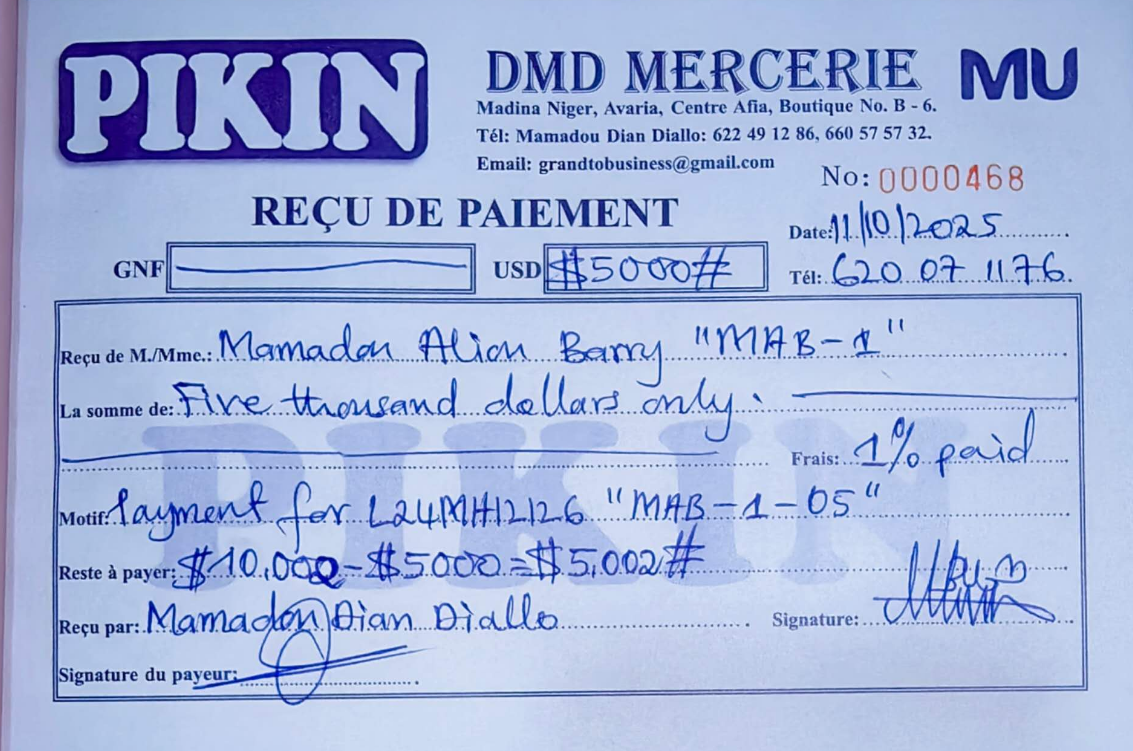 PIKIN
DMD MERCERIE MU
Madina Niger, Avaria, Centre Afia, Boutique No. B - 6.
Tél: Mamadou Dian Diallo: 622 49 12 86, 660 57 57 32.
Email: grandtobusiness@gmail.com
No: 0000468
REÇU DE PAIEMENT
Date: 11/10/2025
GNF USD $5000#
Tél: 620 07 11 76
Reçu de M./Mme.: Mamadou Aliou Barry "MAB-1"
La somme de: Five thousand dollars only.
Frais: 1% paid
PIKIN
Motif: Payment for L24MH12126 "MAB-1-05"
Reste à payer: $10,002-$5000=$5,002#
Reçu par: Mamadou Dian Diallo
Signature:
Signature du payeur: